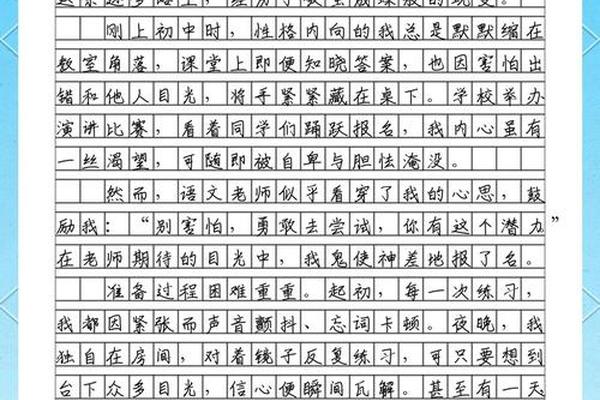 刚上初中时，性格内向的我总是默默缩在
教室角落，课堂上即便知晓答案，也因害怕出
错和他人目光，将手紧紧藏在桌下。学校举办
演讲比赛，看着同学们踊跃报名，我内心虽有
一丝渴望，可随即被自卑与胆怯淹没。
然而，语文老师似乎看穿了我的心思，鼓
励我：“别害怕，勇敢去尝试，你有这个潜力”
在老师期待的目光中，我鬼使神差地报了名。
准备过程困难重重。起初，每一次练习，
我都因紧张而声音颤抖、忘词卡顿。夜晚，我
独自在房间，对着镜子反复练习，可只要想到
台下众多目光，信心便瞬间瓦解。甚至有一天